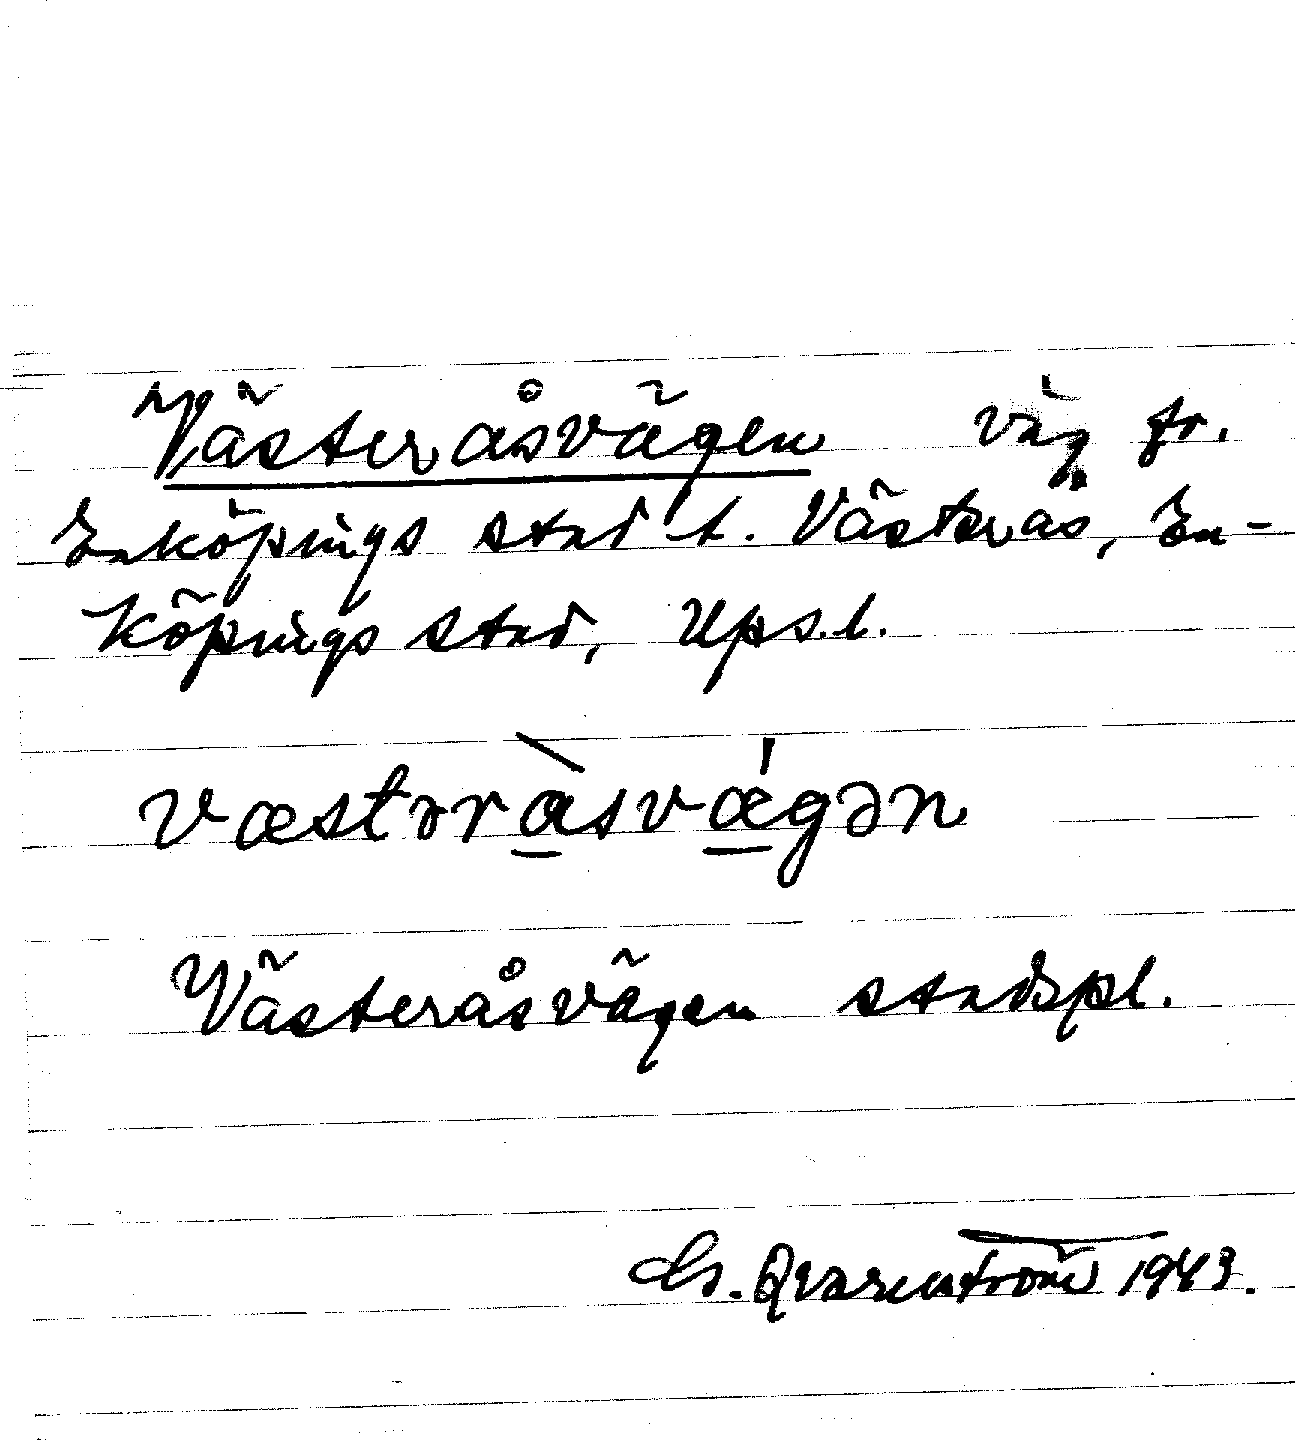 Västeråsvägen väg fr.
Enköpings stad t. Västerås, En-
köpings stad, Ups.l.
væstəràsvǽgən
Västeråsvägen stadspl.
Qvarnström 1943.